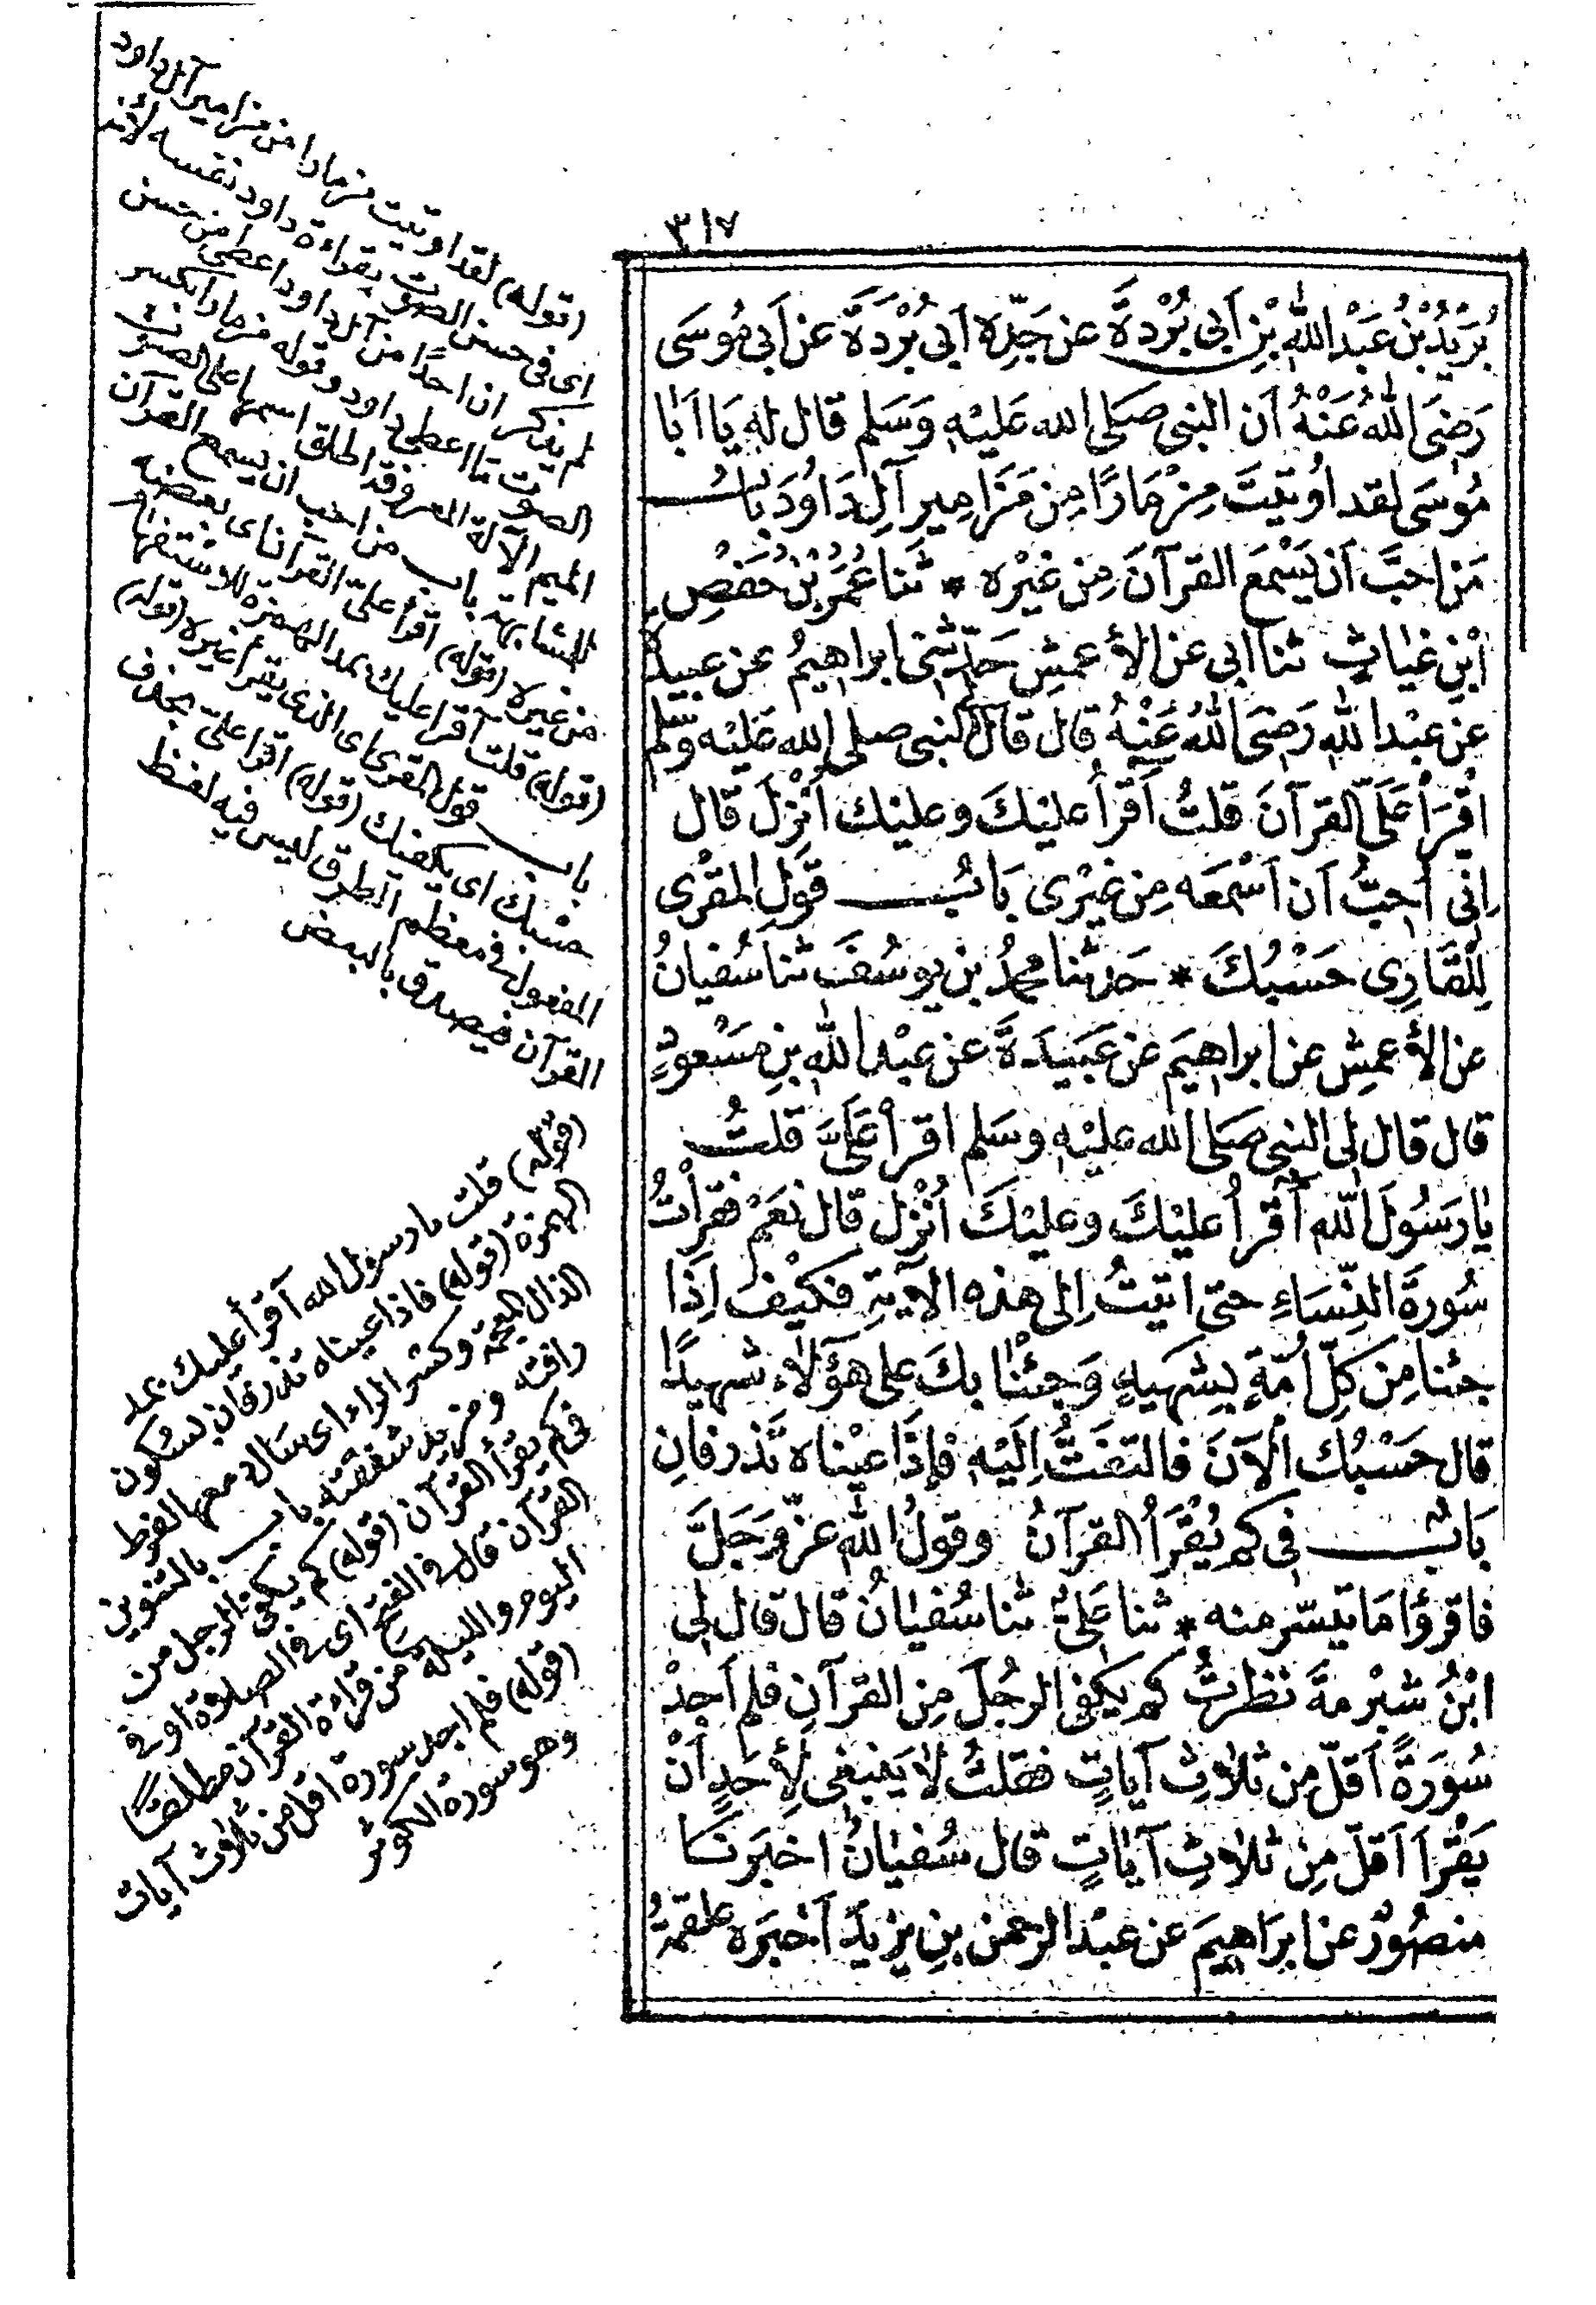 ٣١٧
بُرَيْدُ بْنُ عَبْدِ اللّٰهِ بْنِ أَبِي بُرْدَةَ عن جَدِّهِ أَبِي بُرْدَةَ عن أَبِي مُوسَى
رَضِيَ اللّٰهُ عَنْهُ أَن النبي صَلى الله عَلَيْهِ وَسَلم قال له يَا أَبَا
مُوسَى لقد أُوتِيتَ مِزْمَارًا مِن مَزَامِيرِ آلِ دَاوُدَ بَابُ
مَن احَبَّ أَن يَسْمَعَ القرآنَ مِن غَيْرِه * ثَنا عُمَرُ بْنُ حَفْصِ
ابْنِ غِيَاثٍ ثنا أبي عن الأعمشِ حَدّثنِي ابراهِيمُ عن عبيدةَ
عن عبْد اللّٰه رَضِيَ اللّٰهُ عَنْهُ قال قال النبي صلى الله عَليْه وسّلم
اقْرَأْ عَلَيّ القرآنَ قلتُ أَقْرَأُ عليْكَ وعليْك أُنْزِلَ قال
إنّي أُحِبُّ أن أَسْمَعَه مِن غيْرِي بَابُ قَوْلِ المقْرِي
لِلْقَارِي حَسْبُكَ * حَدثنا محمدُ بن يوسُفَ ثنا سُفيانُ
عن الأعمشِ عن ابراهِيمَ عن عَبِيدَةَ عن عبْد اللّٰه بنِ مَسْعودٍ
قال قال لي النبي صَلى الله عليْه وسَلم اقرأْ عَلَيَّ قلتُ
يٰارَسُولَ اللّه آقرأُ عليْكَ وعليْكَ أُنْزِل قال نعَمْ فقرأْتُ
سُورةَ النِّسَاءِ حتى اتيْتُ إلى هَذِه الآيةِ فكَيْفَ إذَا
جئنا مِن كلِّ أُمّةٍ بِشَهيدٍ وَجِئْنَا بكَ على هؤلاءِ شهيدًا
قال حَسْبُك الآنَ فالتفَتُّ إلَيْه فإِذَا عيْناه تَذرفانِ
بَابُ في كم يُقْرَأُ القرآنُ وقولُ اللّٰه عزّ وَجَلَّ
فاقرؤا مَا تيَسّر منه * ثنا عَلِيٌّ ثنا سُفيانُ قال قال لي
ابْنُ شبْرمةَ نظرتُ كم يكفي الرجُلَ مِن القرآنِ فلم أَجِدْ
سُورَةً أَقلّ مِن ثلاثِ آيَاتٍ فقلتُ لا يَنبغي لأَحَدٍ أَنْ
يَقْرأَ أَقلّ مِن ثلاثِ آيٰاتٍ قال سُفيانُ اخبَرنَا
منصُورٌ عن ابرَاهِيمَ عن عبْد الرحمن بنِ يزيدَ أَخْبَرَه علقمةُ
(قوله) لقد اوتيت مزمارا من مزامير آل داود
اى فى حسن الصوت بقراءة داود نفسه لأنه
لم يذكر ان احدًا من آل داود اعطى من حسن
الصوت ما اعطى داود وقوله مزمارا بكسر
الميم الآلة المعروفة اطلق اسمها على الصوت
للمشابهة باب من احب ان يسمع القرآن
من غيره (قوله) اقرأ على القرآن اى بعضه
(قوله) قلت آقرأ عليك بمد الهمزة للاستفهام
باب قول المقرى اى الذى يقرأ غيره (قوله)
حسْبك اى يكفيك (قوله) اقرأ على بحذف
المفعول فى معظم الطرق ليس فيه لفظ
القرآن فيصدق بالبعض
(قوله) قلت يا رسول الله آقرأ عليك بمد
الهمزة (قوله) فاذا عيناه تذرفان بسكون
الذال المعجمة وكسر الراء اى سال دمعها لفرط
رافته ومزيد شفقته باب بالتنوين
فى كم يقرأ القرآن (قوله) كم يكفى الرجل من
القرآن قال فى الفتح اى فى الصلاة او فى
اليوم والليلة من قراءة القرآن مطلقًا
(قوله) فلم اجد سورة اقل من ثلاث آيات
وهو سورة الكوثر